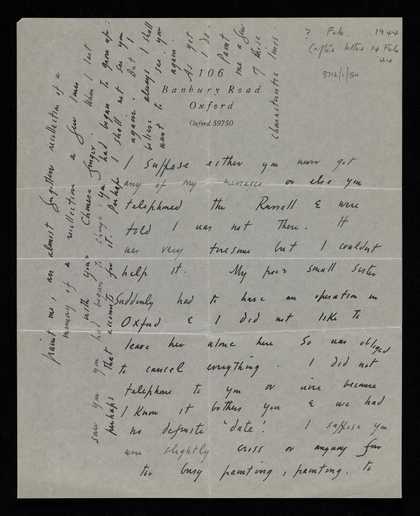 ? Feb. 1944
106
Banbury Road
Oxford
Oxford 59750
I suppose either you never got
any of my messages or else you
telephoned the Russell & were
told I was not there. It
was very tiresome but I couldnt
help it. My poor small sister
suddenly had to have an operation in
Oxford & I did not like to
leave her alone here so was obliged
to cancel everything. I did not
telephone to you or wire because
I know it bothers you & we had
no definite 'date'. I suppose you
were slightly cross or anyway far
too busy painting, painting, to
paint me, an almost forgotten recollection of a
memory of a recollection a few lines
with your Chinese finger. When I last
saw you you had begun to
perhaps that accounts for it. Perhaps I shall not see you
again. But I shall
believe always I shall
want to see you
again.
As yet I do
Paint
me a few
of those
Characteristic lines